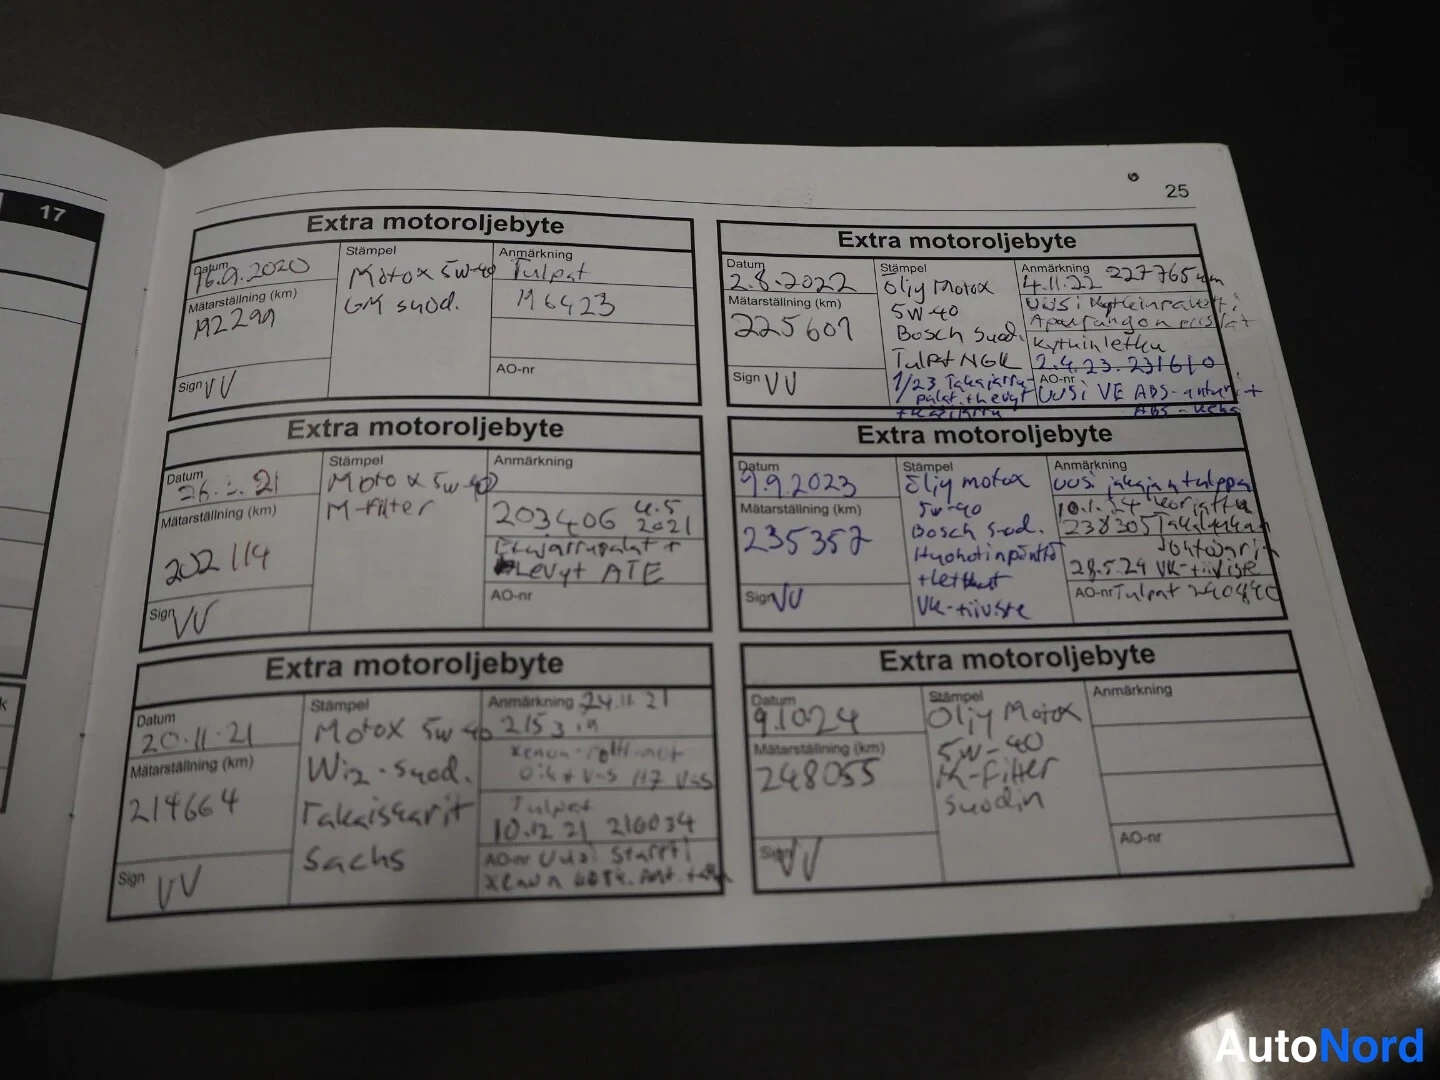 17
25
Extra motoroljebyte
Datum
16.9.2020
Mätarställning (km)
192299
Sign VV
Stämpel
Motox 5w-40
GM suod.
Anmärkning
Tulpat
M6423
AO-nr
Extra motoroljebyte
Datum
26. 21
Mätarställning (km)
202114
Sign VV
Stämpel
Motox 5w-40
M-filter
Anmärkning
203406 4.5
2021
Etujarrupalat +
Levyt ATE
AO-nr
Extra motoroljebyte
Datum
20.11.21
Mätarställning (km)
214664
Sign VV
Stämpel
Motox 5w-40
Wiz-suod.
Takaiskarit
Sachs
Anmärkning 24.11.21
Xenon-
H7
Tulpat
10.12 21 216034
AO-nr Uusi Startti
Extra motoroljebyte
Datum
2.8.2022
Mätarställning (km)
225601
Sign VV
Stämpel
Öljy Motox
5w-40
Bosch Suod.
Tulpat NGK
1/23 Takajarru-
palat + levyt
Anmärkning 227765 km
4.11.22
Uusi Kytkinpaketti
Kytkinletku
2.4.23. 231610
AO-nr
Uusi VE ABS-anturi +
ABS-
Extra motoroljebyte
Datum
9.9.2023
Mätarställning (km)
235357
Sign VV
Stämpel
Öljy motox
5w-40
Bosch suod.
Huohotinpönttö
+letkut
VK-tiiviste
Anmärkning
Uusi jakajantulppa
10.1.24 korjattu
238305 Takalukon
Johtosarja
28.5.24 VK-tiiviste
AO-nr Tulpat
Extra motoroljebyte
Datum
9.10.24
Mätarställning (km)
248055
Sign VV
Stämpel
Öljy Motox
5W-40
K-Filter
suodin
Anmärkning
AO-nr
AutoNord